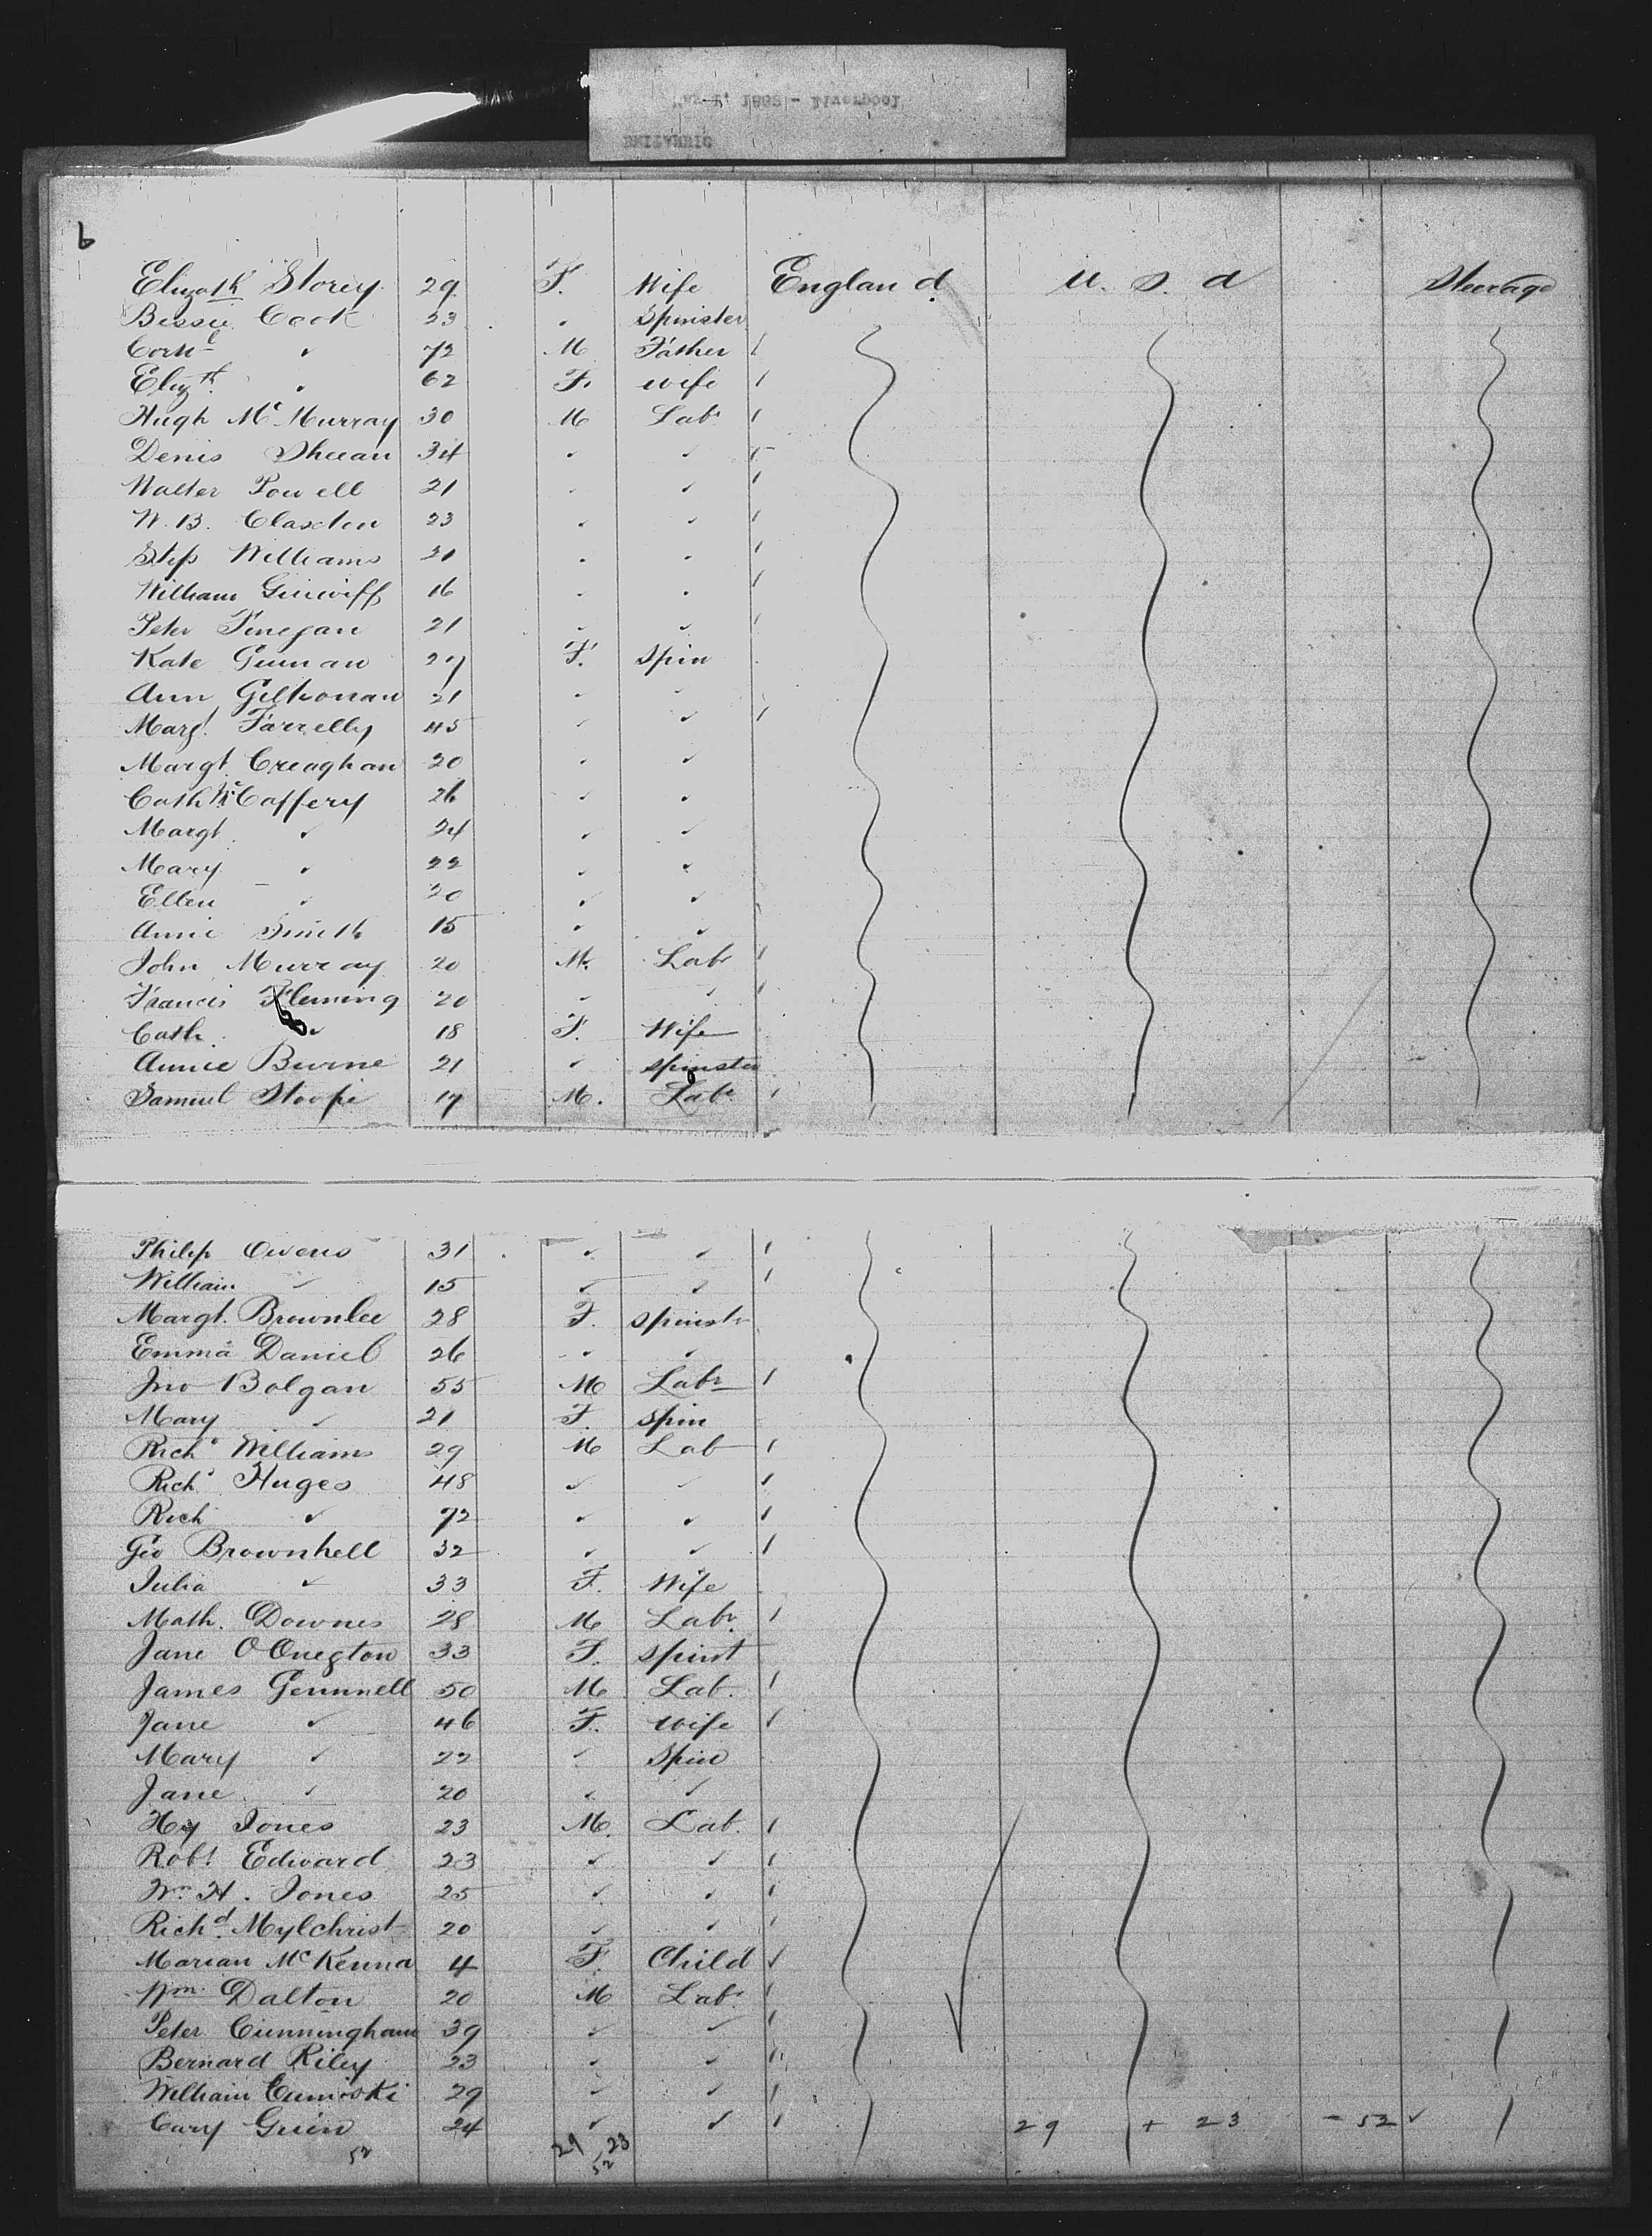 BRITANNIC
- Liverpool
6
Elizath Storey 29 F. Wife England U. S. A Steerage
Bessie Cook 23 " Spinster
Cornl " 72 M Father
Elizth " 62 F. wife
Hugh McMurray 30 M Labr
Denis Sheean 34 " "
Walter Powell 21 " "
W. B. Claxton 23 " "
Step Williams 21 " "
William 16 " "
Peter Finegan 21 " "
Kate 27 F. Spin
Ann 21 " "
Margt Farrelly 45 " "
Margt Creaghan 20 " "
Cath McCaffery 26 " "
Margt " 24 " "
Mary " 22 " "
Ellen " 20 " "
Annie Smith 15 " "
John Murray 20 M. Labr
Francis Fleming 20 " "
Cath. " 18 F. Wife
Annie Burne 21 " spinster
Samuel 19 M. Labr
Philip Owens 31 " "
William " 15 " "
Margt. Brownlee 28 F. spinstr
Emma Daniel 26 " "
Jno Bolgan 55 M Labr
Mary " 21 F. Spin
Richd Williams 29 M Lab
Richd Huges 48 " "
Rich " 72 " "
Geo Brownhell 32 " "
Julia " 33 F. Wife
Math. Downes 28 M Labr
Jane 33 F. Spinst
James Gemmell 50 M Lab.
Jane " 46 F. wife
Mary " 22 " Spin
Jane " 20 " "
Hy Jones 23 M. Lab.
Robt Edward 23 " "
Wm H. Jones 25 " "
Richd Mylchrist 20 " "
Marian McKenna 4 F. Child
Wm Dalton 20 M Labr
Peter Cunningham 39 " "
Bernard Riley 23 " "
William 29 " "
Cary 24 " " 29 + 23 - 52
52 29 23
52